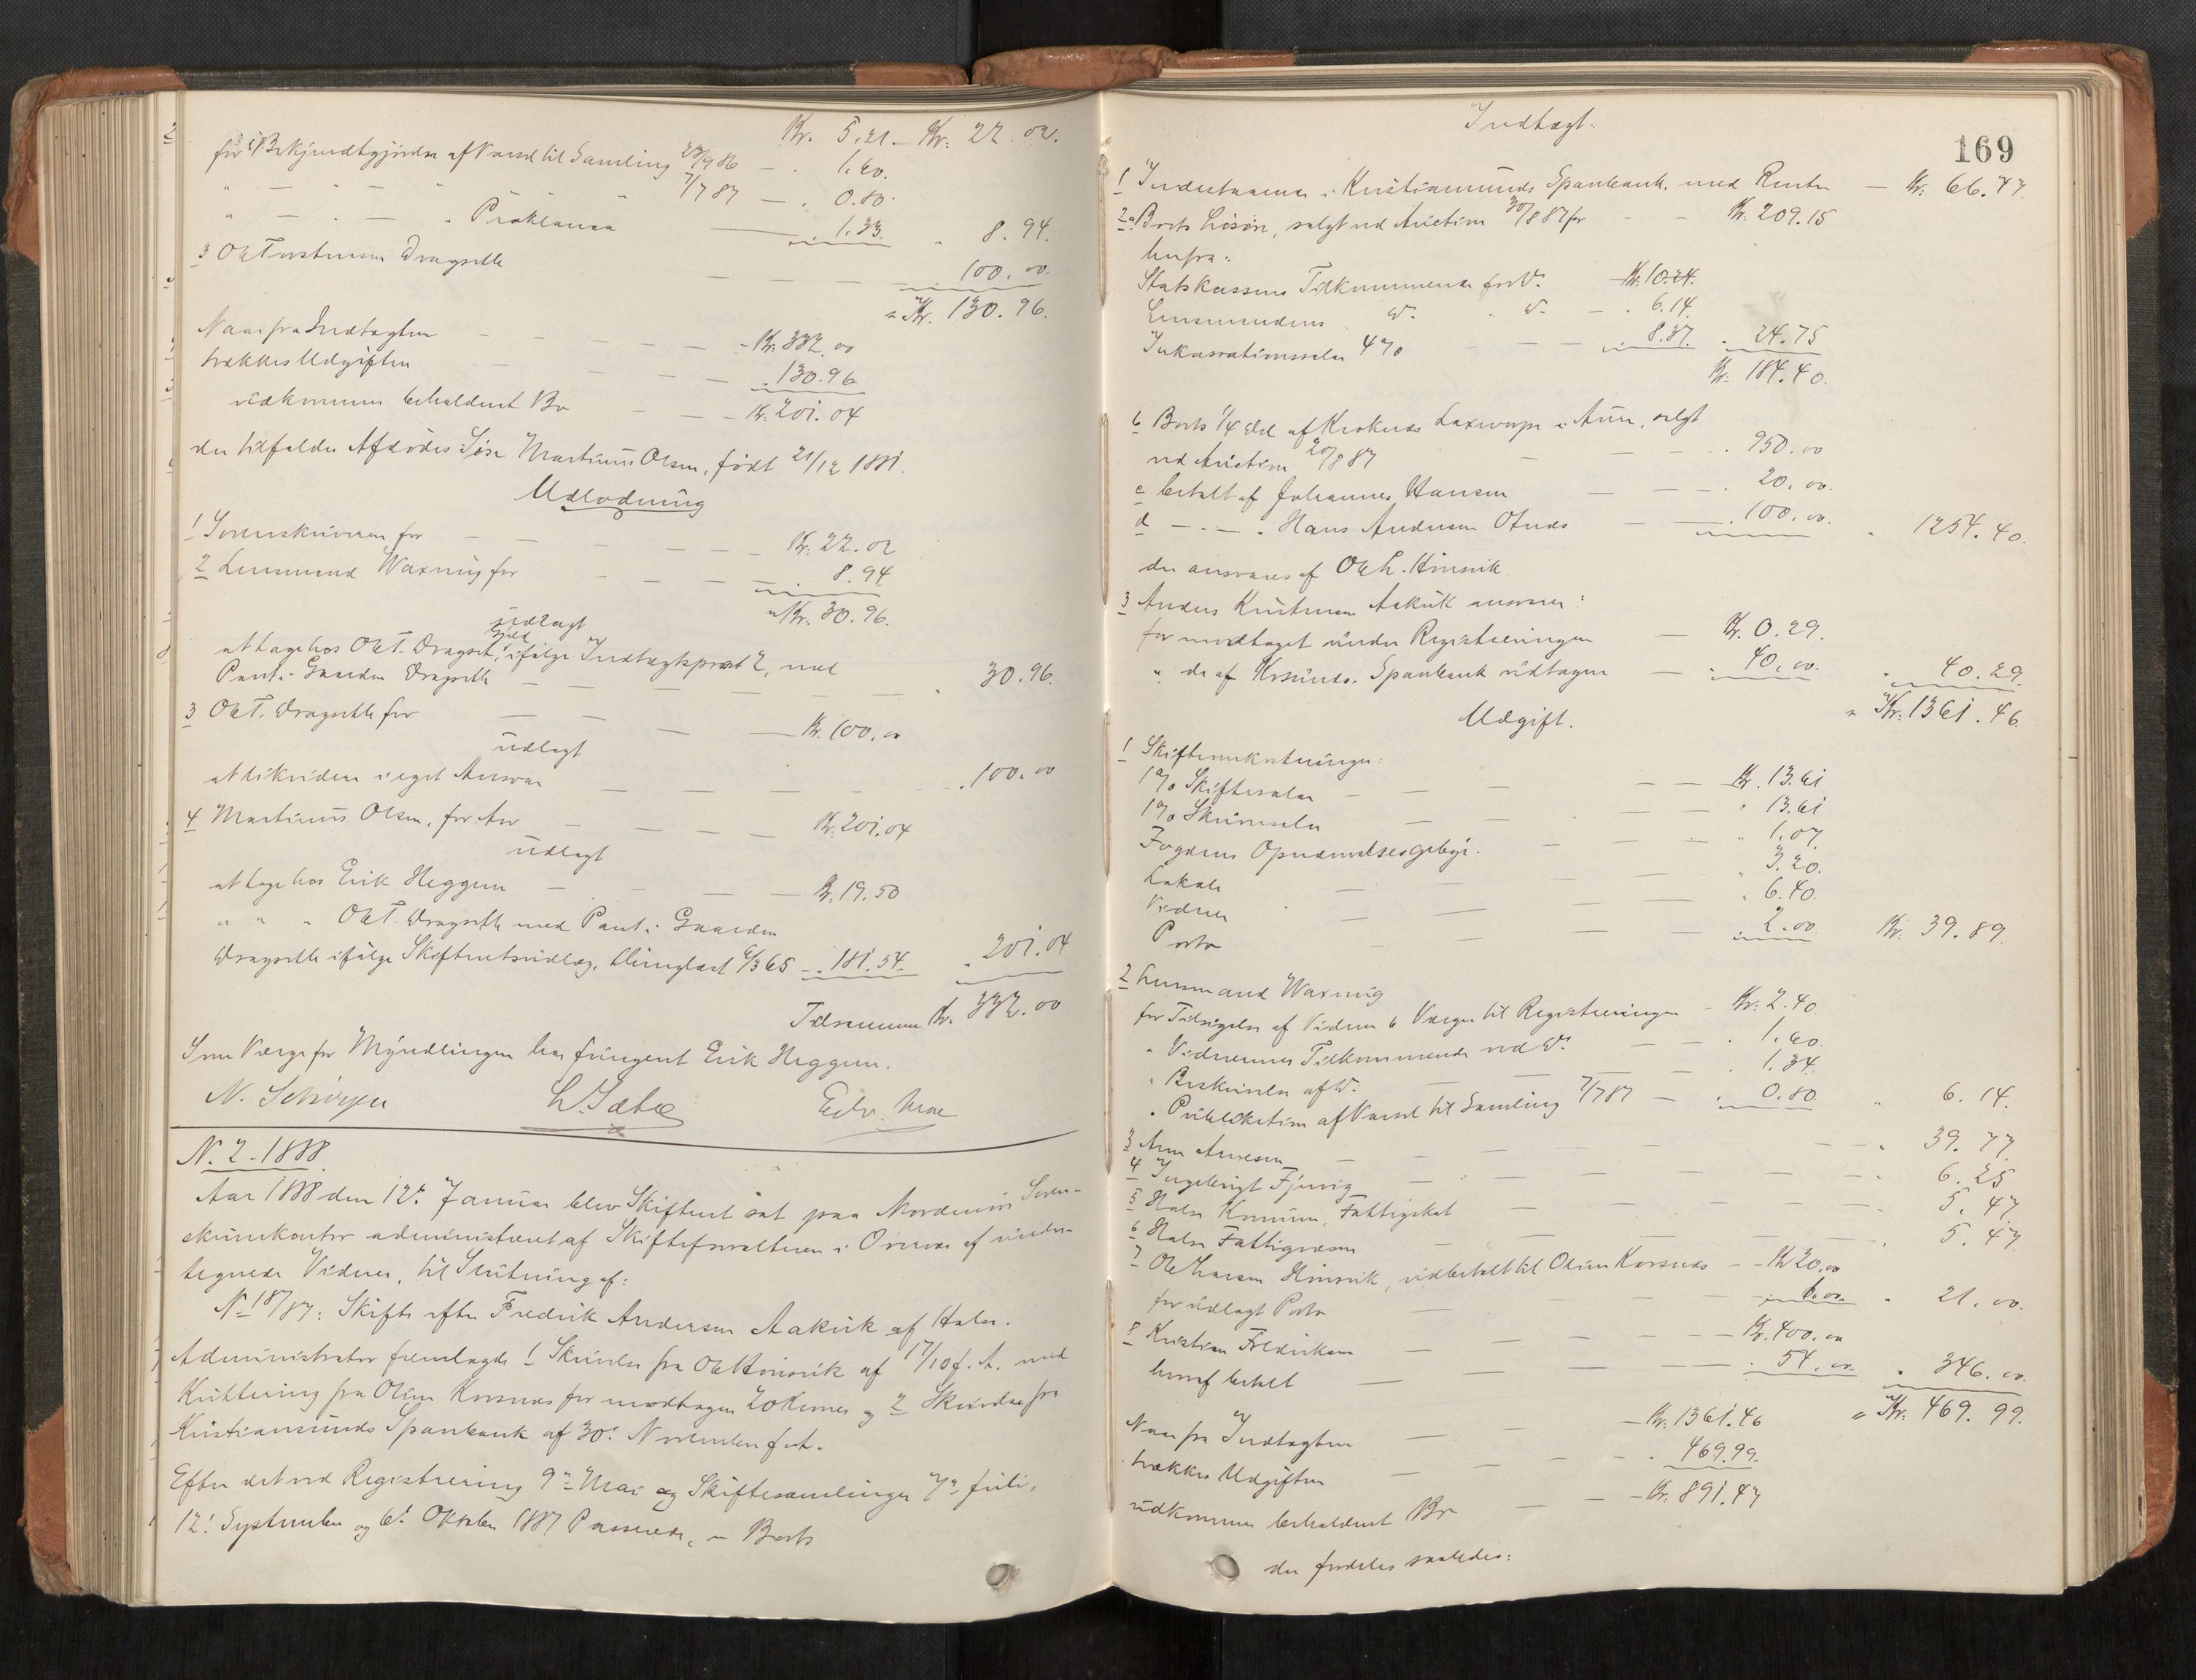 Kr. 5,21 - Kr. 22.02.
for Bekjendtgjørelse af Varsel til Samling 23/9 86 - . 1.60.
" - " - " 7/7 87 - . 0.80.
" - " - " Proklama . 1.33. " 8.94.
3 Ole Torstensen Dragseth 100.00.
= Kr. 130.96.
Naar fra Indtægten - Kr. 332.00
trækkes Udgiften . 130.96
udkommer beholdent Bo - Kr. 201.04
der tilfalder Afdødes Søn Martinus Olsen, født 21/12 1881.
Udlodning
1 Sorenskriveren for Kr. 22.02
2 Lensmand Waxnig for . 8.94
= Kr. 30.96.
udlagt
at tage hos Ole T. Dragset, Gjeld ifølge Indtægtspost 2, med
Pant i Gaarden Dragseth " 30.96.
3 Ole T. Dragseth for - Kr. 100.00
udlagt
at likvidere i eget Ansvar . 100.00
4 Martinus Olsen, for Arv Kr. 201.04
udlagt
at tage hos Erik Heggem Kr. 19.50
" " " Ole T. Dragseth med Pant i Gaarden
Dragseth ifølge Skifteretsudlæg, thinglæst 6/3 65 - . 181.54. . 201.04
Tilsammen Kr. 332.00
Som Værge for Myndlingen har fungeret Erik Heggem.
N. Edv. Moe
N. 2 - 1888.
Aar 1888 den 12te Januar blev Skifteret sat paa Nordmør Soren-
skriverkontor administreret af Skifteforvalteren i Overvær af under-
tegnede Vidner, til Slutning af:
No 18/87: Skifte efter Fredrik Andersen Aakvik af Halse.
Administrator fremlagde 1 Skrivelse fra Ole Hinsvik af 17/10 f. A. med
Kvittering fra Oline Korsnes for modtagne 20 Kroner og 2 Skrivelse fra
Kristiansunds Sparebank af 30te November f. A.
Efter det ved Registrering 9de Mai og Skiftesamlinger 7de Juli,
12te September og 6te Oktober 1887 Passerede, er Boets
169
Indtægt.
1 Indestaaende i Kristiansunds Sparebank med Renter - Kr. 66.77.
2 a Boets Løsøre, solgt ved Auktion 20/8 87 for - - Kr. 209.15
herfra:
Statskassens Tilkommende for Do. - Kr. 10.24.
Lensmandens Do. . Do. - . 6.14.
Inkassationssalær 4% - - . 8.37. . 24.75
Kr. 184.40.
b Boets 1/4 Del af Korsnes Laxevarp i Aure, solgt
ved Auktion 20/8 87 - - . 950.00
c betalt af Johannes Hansen - - . 20.00.
d - . - . Hans Andersen Otnes - . 100.00. . 1254.40.
der ansvares af Ole L. Hinsvik.
3 Anders Kristensen Aakvik ansvarer:
for modtaget under Registreringen - Kr. 0.29.
" de af Krsunds. Sparebank udtagne - . 40.00. . 40.29.
= Kr. 1361.46
Udgift.
1 Skifteomkostninger:
1% Skiftesalær - - Kr. 13.61
1% Skriversalær - - . 13.61
Fogdens Opnævnelsesgebyr. - - " 1.07.
Lokale - - " 3.20.
Vidner - - . 6.40.
Porto - - . 2.00. Kr. 39.89.
2 Lensmand Waxnig
for Tilsigelse af Vidner & Værger til Registreringen - Kr. 2.40.
" Vidnernes Tilkommende ved Do. - . 1.60.
" Beskrivelse af Do. - . 1.34.
" Publikation af Varsel til Samling 7/7 87 - . 0.80. " 6.14.
3 Arn Arnesen - - " 39.77.
4 Ingebrigt Fjervig - - " 6.25
5 Halse Kommune, Fattigskat - - . 5.47
6 Halse Fattigvæsen - - . 5.47.
7 Ole Larsen Hinsvik, udbetalt til Oline Korsnes - - Kr. 20.00
for udlagt Porto - - . 1.00. . 21.00.
8 Kristian Fredriksen - - Kr. 400.00
heraf betalt - - . 54.00. . 346.00.
= Kr. 469.99.
Naar fra Indtægten - - Kr. 1361.46
trækkes Udgiften - - . 469.99.
udkommer beholdent Bo - - Kr. 891.47
der fordeles saaledes: